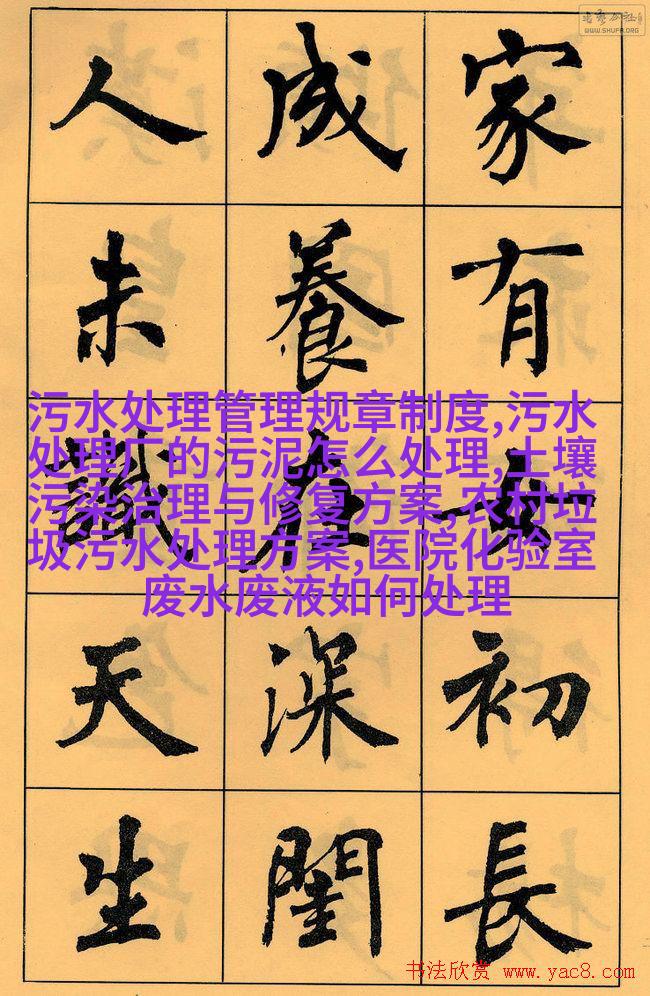 WWW.SHUFA.ORG
家有女初長
成養在深閨
人未識天生
污水处理管理规章制度,污水
处理厂的污泥怎么处理,土壤
污染治理与修复方案,农村垃
圾污水处理方案,医院化验室
废水废液如何处理
书法欣赏 www.yac8.com